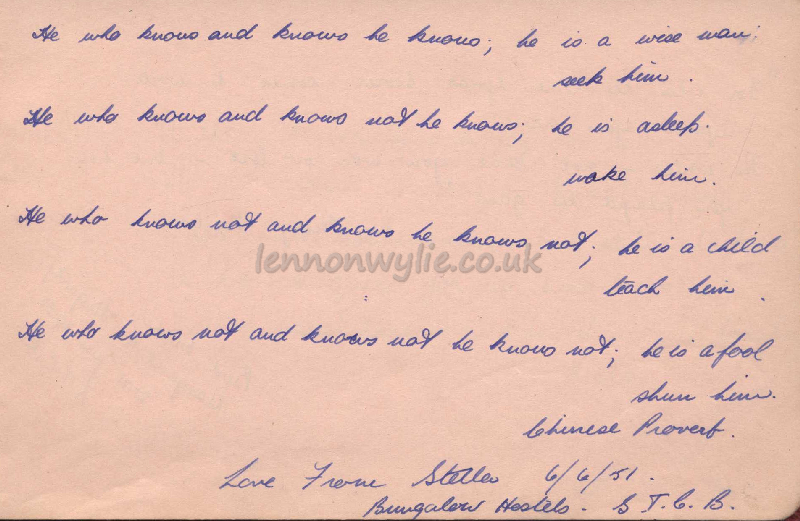 He who knows and knows he knows; he is a wise man;
seek him.
He who knows and knows not he knows; he is asleep.
wake him.
He who knows not and knows he knows not; he is a child
lennonwylie.co.uk
teach him.
He who knows not and knows not he knows not; he is a fool
shun him.
Chinese Proverb.
Love From Stella 6/6/51.
Bungalow Hostels. S.T.C.B.